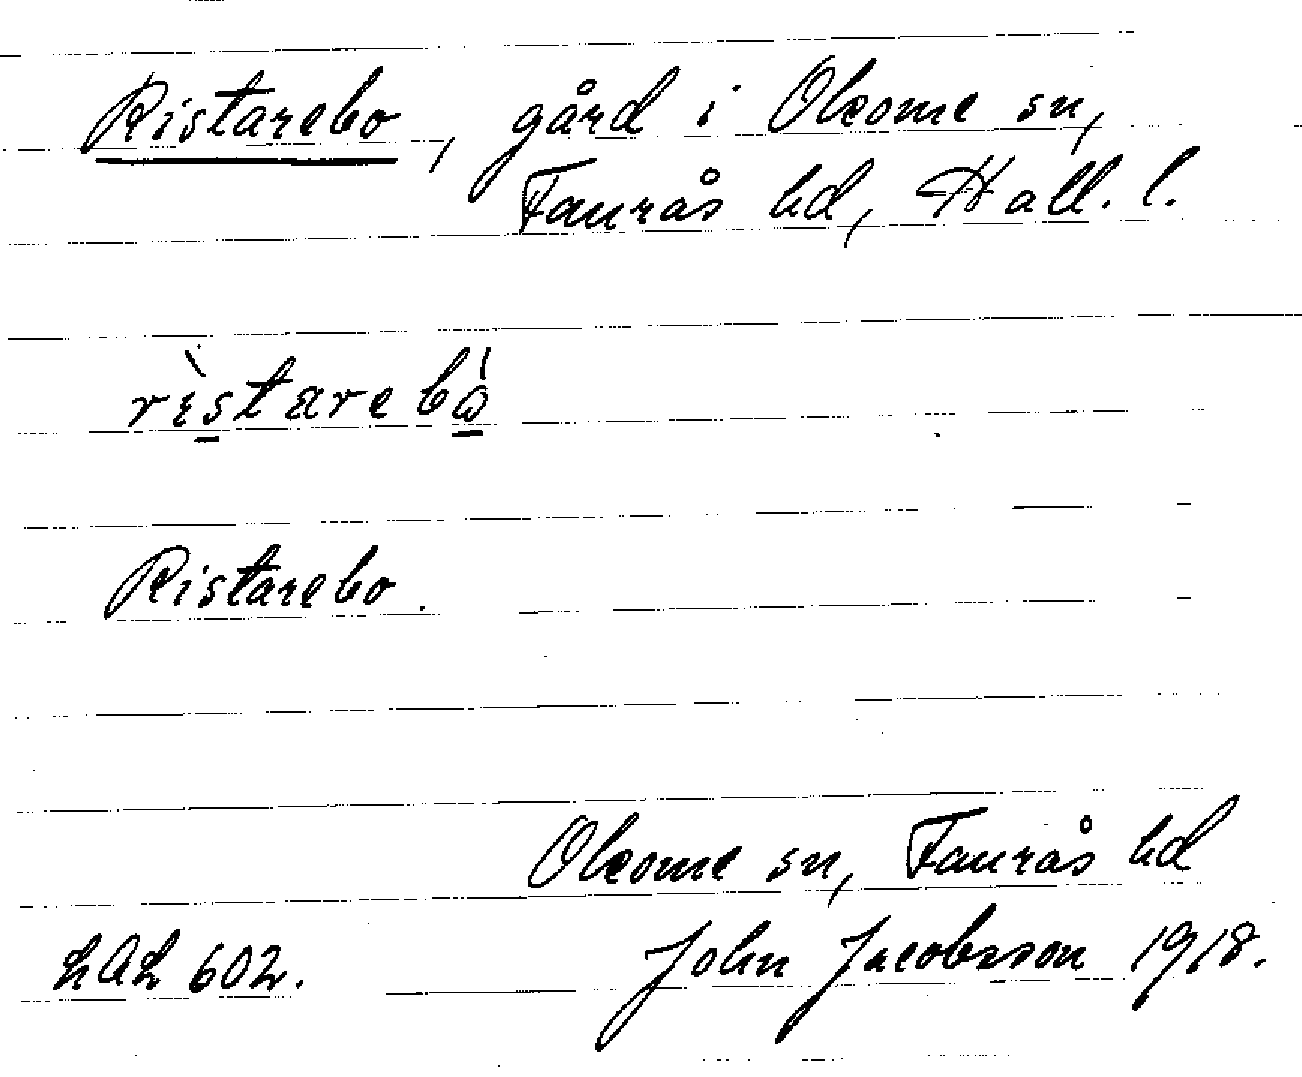 Ristarebo, gård i Okome sn,
Faurås hd, Hall. l.
ristarebo
Ristarebo.
Okome sn, Faurås hd
LAL 602. John Jacobsson 1918.